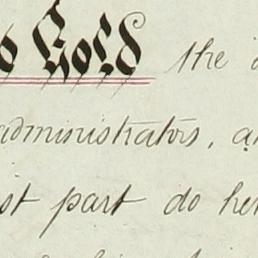 o Hold the
administrators, a
st part do her